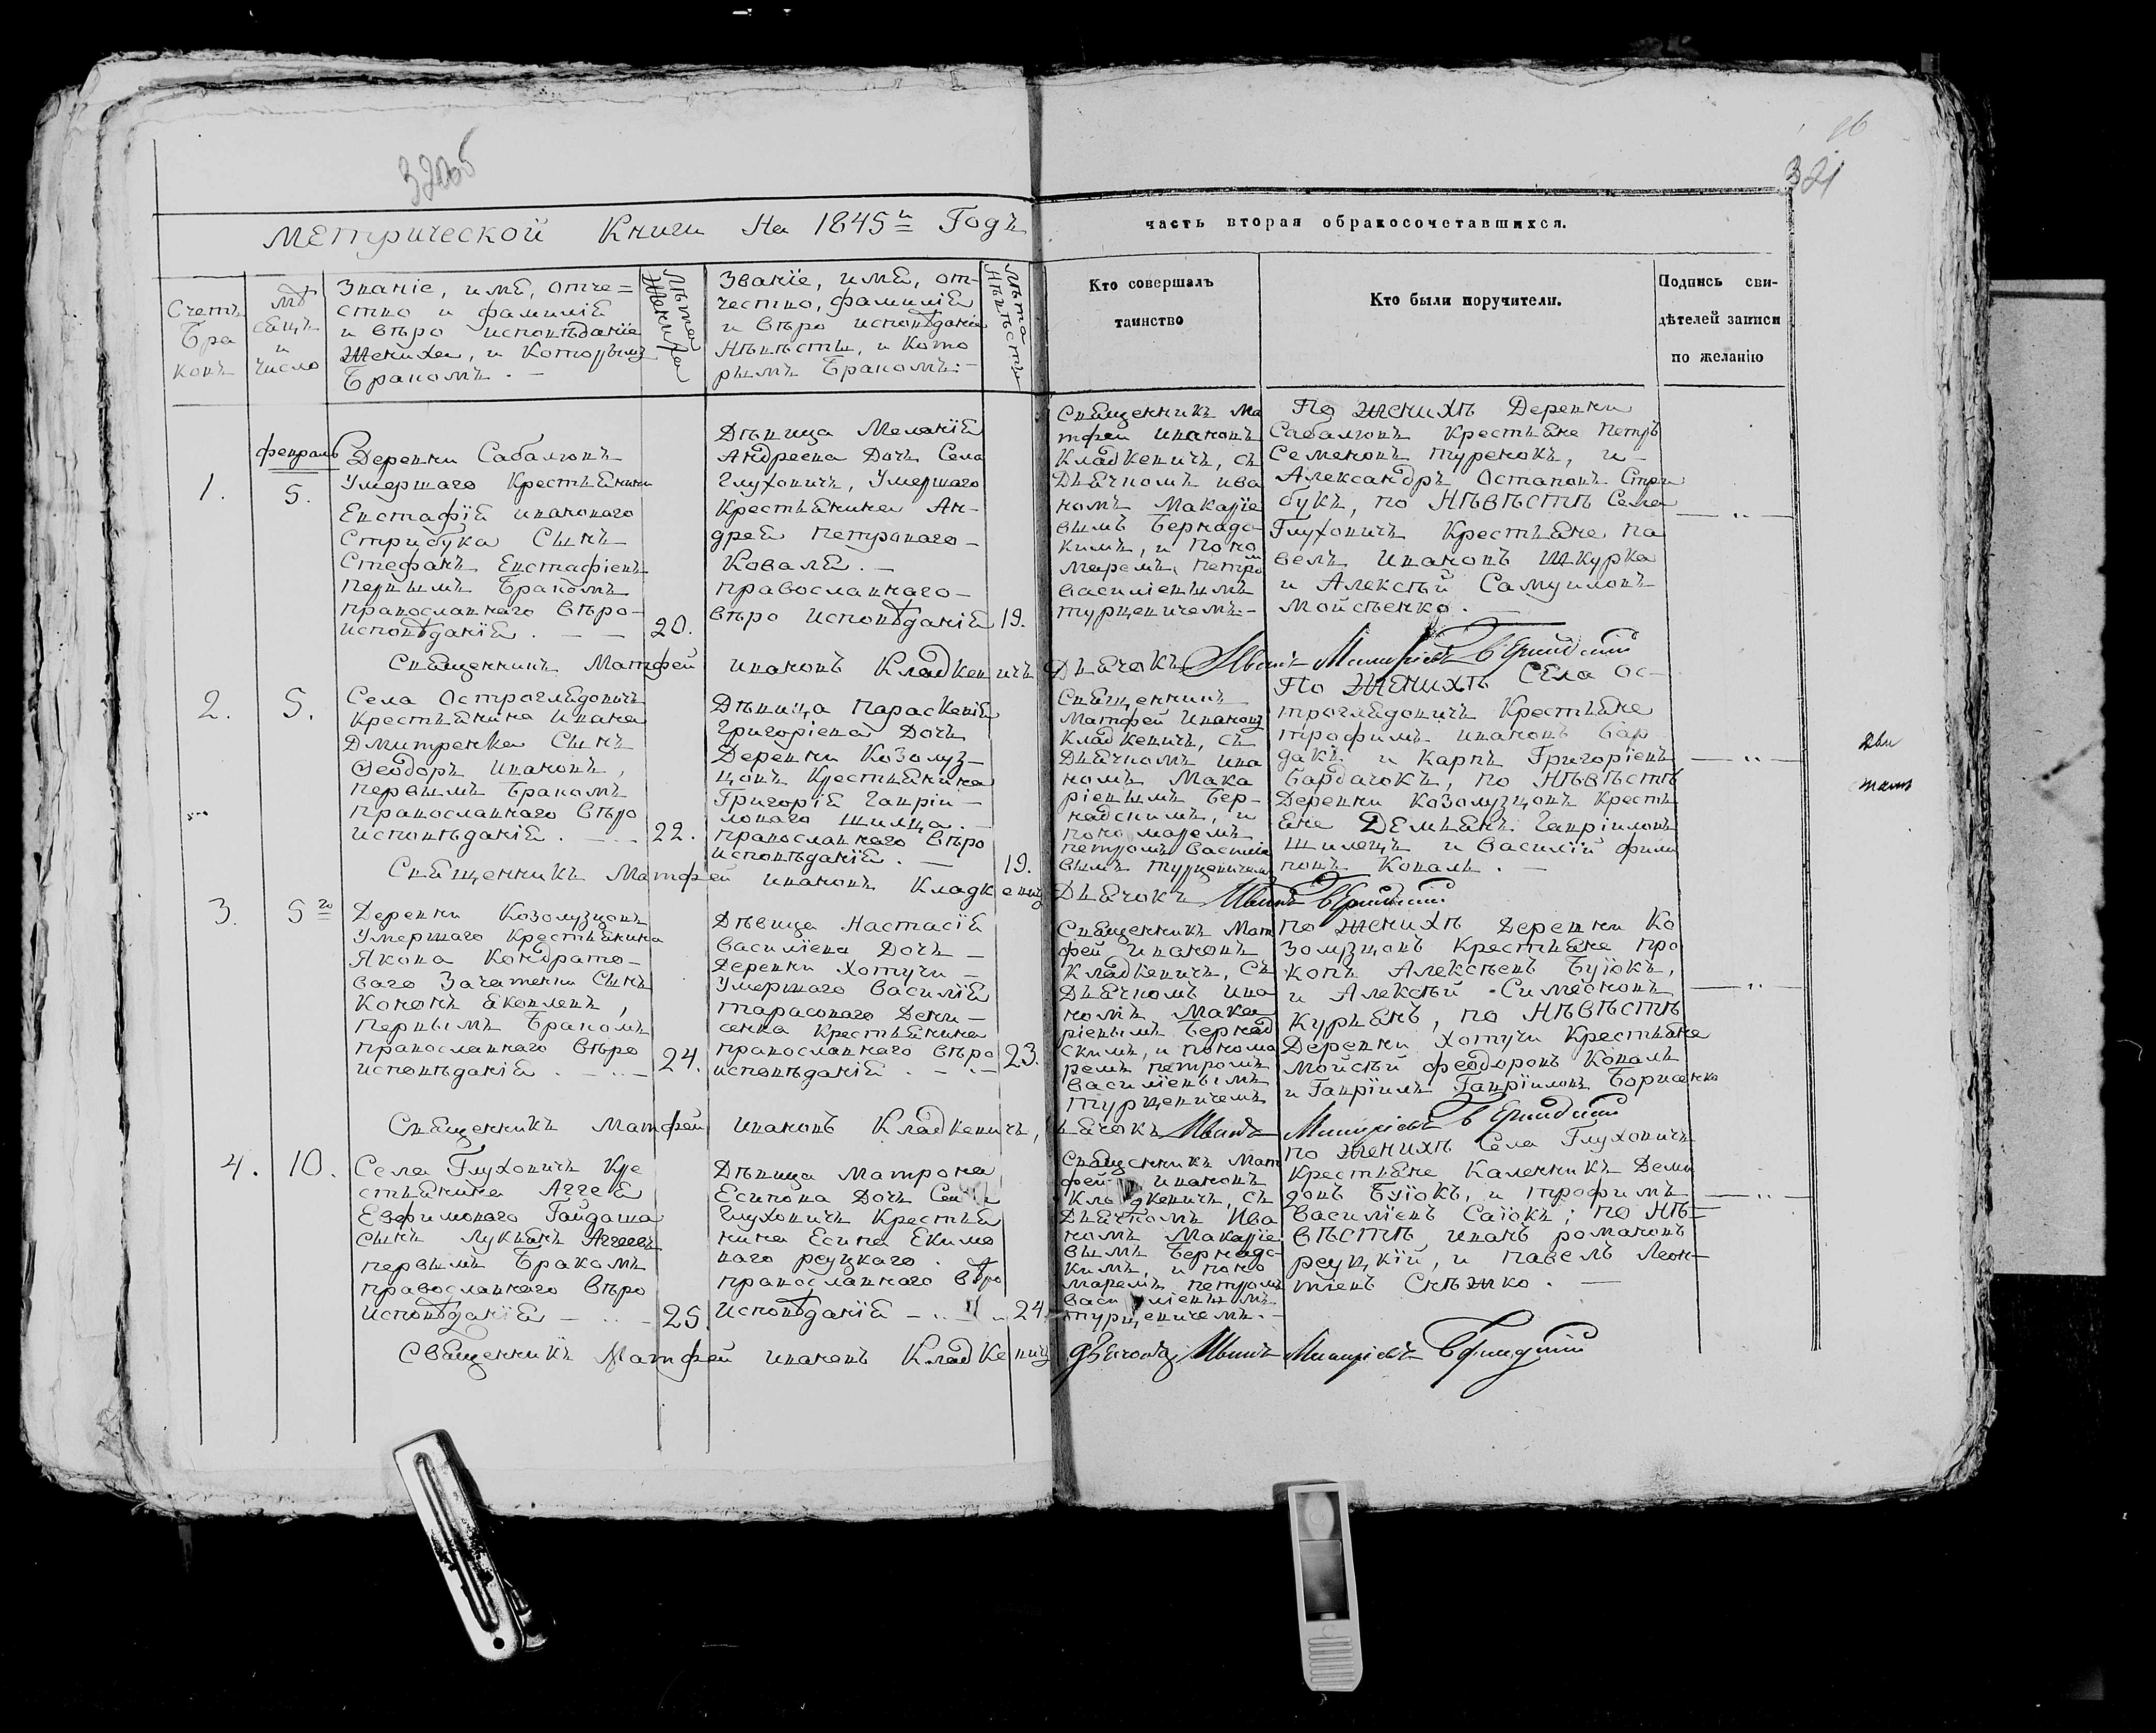 320об
321
Метрической Книги На 1845й Годъ
часть вторая обракосочетавшихся.
Счетъ
Бра
ковъ
мѣ
сяцъ
и
число
Званіе, имя, отче=
ство и фамилія
и вѣро исповѣданіе
Жениха, и Которымъ
Бракомъ. —
Лѣта
Жениха
Званіе, имя, от-
чество, фамилія
и вѣро исповѣданіе
Нѣвѣсты, и Кото
рымъ Бракомъ: —
Лѣта
Нѣвѣсты
Кто совершалъ
таинство
Кто были поручители.
Подпись сви-
дѣтелей записи
по желанію
февраль
1.
5.
Деревни Сабаловъ
Умершаго Крестьянина
Евстафія ивановаго
Стрибука Сынъ
Стефанъ Евстафіевъ
первымъ Бракомъ
православнаго вѣро-
исповѣданія. — —
20.
Дѣвица Меланія
Андреева Дочь Села
Глуховичъ, Умершаго
Крестьянина Ан-
дрея петроваго —
Коваля. —
православнаго —
вѣро исповѣданія
19.
Священникъ Ма
тфей ивановъ
Кладкевичъ, съ
Дьячкомъ ива
номъ Макаріе
вымъ Бернадс-
кимъ, и поно
маремъ, петромъ
василіевымъ
турцевичемъ: —
По Женихѣ Деревни
Сабаловъ Крестьяне петръ
Семеновъ турчокъ, и —
Александръ Остаповъ Стри
букъ, по Нѣвѣстѣ Села
Глуховичъ Крестьяне па
велъ ивановъ Шкурка
и Алексѣй Самуиловъ
мойсѣенко. —
Священникъ Матфей ивановъ Кладкевичъ Дьячокъ Иванъ Макаріевъ Бернадскій
2.
5.
Села Остроглядовичъ
Крестьянина ивана
Дмитренка Сынъ
Ѳеодоръ ивановъ,
первымъ Бракомъ
православнаго вѣро
исповѣданія. — ..
22.
Дѣвица параскевія
Григоріева Дочь
Деревни Козолуз-
цовъ Крестьянина
Григорія Гавріи —
ловаго шилца. —
православнаго вѣро
исповѣданія. —
19.
Священникъ
Матфей ивановъ
Кладкевичъ, съ
Дьячкомъ ива
номъ Мака
ріевымъ Бер-
надскимъ, и
поно маремъ
петромъ василіе
вымъ турцевичемъ
По Женихѣ Села Ос—
троглядовичъ Крестьяне
трофимъ ивановъ Бар
дакъ и Карпъ Григоріевъ
Бардачокъ, по Нѣвѣстѣ
Деревни Козолузцовъ Кресть
яне Демьянъ Гавріиловъ
шилецъ и василій фили
повъ Коваль. —
Священникъ Матфей ивановъ Кладкевичъ Дьячокъ Иванъ Бернадскій
3.
5го
Деревни Козолузцовъ
Умершаго Крестьянина
Якова Кондрато-
ваго Зачатенка Сынъ
Кононъ яковлевъ,
первымъ Бракомъ
православнаго вѣро
исповѣданія. — ..
24.
Дѣвица Настасія
василіева Дочь —
Деревни Хотучи —
Умершаго василія
тарасоваго Дени —
сенка Крестьянина
православнаго вѣро
исповѣданія. — ..
23.
Священникъ Мат
фей ивановъ
Кладкевичъ, съ
Дьячкомъ ива
номъ Мака
ріевымъ Бернад
скимъ, и понома
ремъ петромъ
василіевымъ
турцевичемъ
по Женихѣ Деревни Ко
золузцовъ Крестьяне про
копъ Алексѣевъ Буіокъ,
и Алексѣй Симеоновъ
Курьянъ, по Нѣвѣстѣ
Деревни Хотучи Крестьяне
мойсѣй феодоровъ Коваль
и Гавріилъ Гавріиловъ Борисенко
Священникъ Матфей ивановъ Кладкевичъ, Дьячокъ Иванъ Макаріевъ Бернадскій
4.
10.
Села Глуховичъ Кре
стьянина Аггея
Евфимоваго Гайдаша
сынъ Лукьянъ Аггеевъ
первымъ Бракомъ
православнаго вѣро
исповѣданія — ..
25.
Дѣвица матрона
Есипова Дочь Села
Глуховичъ Крестья
нина Есипа Екимо
ваго реуцкаго.
православнаго вѣро
исповѣданія — ..
24.
Священникъ Мат
фей ивановъ
Кладкевичъ, съ
Дьячкомъ Ива
номъ Макаріе
вымъ Бернадс-
кимъ, и поно
маремъ петромъ
василіевымъ
турцевичемъ. —
по Женихѣ Села Глуховичъ
Крестьяне Каленикъ Деми
довъ Буіокъ, и трофимъ
василіевъ Саіокъ; по Нѣ=
вѣстѣ, иванъ романовъ
реуцкій, и павелъ Леон—
тіевъ Снѣжко. —
Священникъ Матфей ивановъ Кладкевичъ Дьячокъ Иванъ Макаріевъ Бернадскій